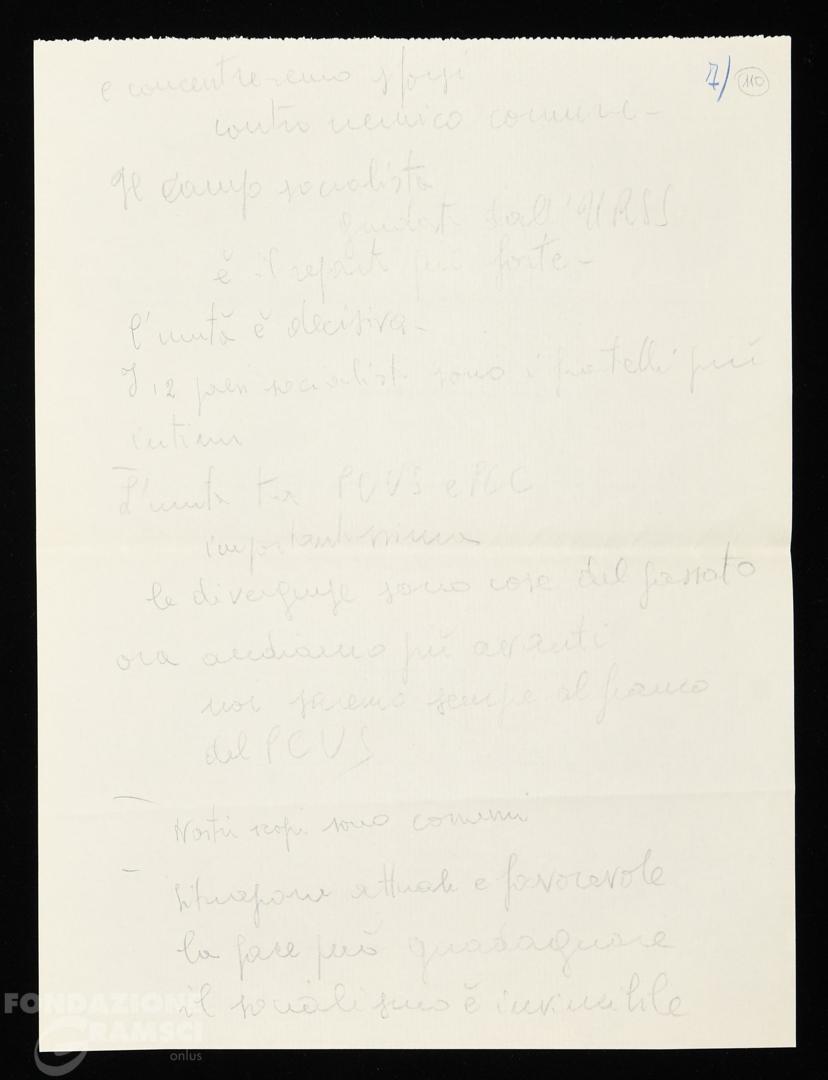 7/ 110
e concentreremo sforzi
contro nemico comune -
Il campo socialista
guidato dall'URSS
è il reparto più forte -
L'unità è decisiva -
I 12 paesi socialisti sono i fratelli più
intimi
L'unità tra PCUS e PCC
importantissima
le divergenze sono cose del passato
ora andiamo più avanti
noi saremo sempre al fianco
del PCUS
- Nostri scopi sono comuni
- Situazione attuale è favorevole
la pace può guadagnare
il socialismo è invincibile
FONDAZIONE
GRAMSCI
onlus